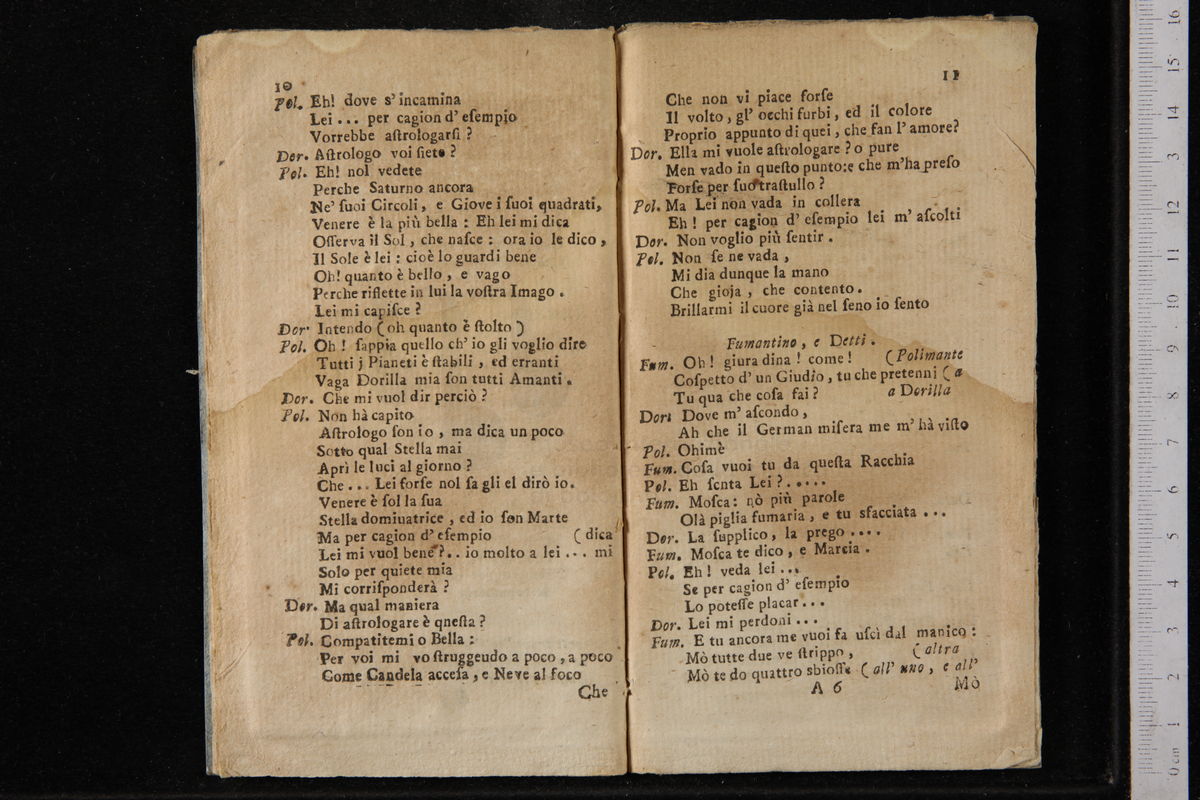 10
Pol. Eh! dove s' incamina
Lei ... per cagion d' eſempio
Vorrebbe aſtrologarſi ?
Dor. Aſtrologo voi ſiete ?
Pol. Eh! nol vedete
Perche Saturno ancora
Ne' ſuoi Circoli, e Giove i ſuoi quadrati,
Venere è la più bella : Eh lei mi dica
Oſſerva il Sol, che naſce : ora io le dico,
Il Sole è lei : cioè lo guardi bene
Oh! quanto è bello, e vago
Perche riflette in lui la voſtra Imago.
Lei mi capiſce ?
Dor. Intendo (oh quanto è ſtolto)
Pol. Oh ! ſappia quello ch' io gli voglio dire
Tutti j Pianeti è ſtabili, ed erranti
Vaga Dorilla mia ſon tutti Amanti.
Dor. Che mi vuol dir perciò ?
Pol. Non hà capito
Aſtrologo ſon io, ma dica un poco
Sotto qual Stella mai
Aprì le luci al giorno ?
Che ... Lei forſe nol ſa gli el dirò io.
Venere è ſol la ſua
Stella domiuatrice, ed io ſon Marte
Ma per cagion d' eſempio (dica
Lei mi vuol bene ?.. io molto a lei ... mi
Solo per quiete mia
Mi corriſponderà ?
Dor. Ma qual maniera
Di aſtrologare è qneſta ?
Pol. Compatitemi o Bella :
Per voi mi vo ſtruggeudo a poco, a poco
Come Candela acceſa, e Neve al foco
Che
11
Che non vi piace forſe
Il volto, gl' occhi furbi, ed il colore
Proprio appunto di quei, che fan l' amore?
Dor. Ella mi vuole aſtrologare ? o pure
Men vado in queſto punto:e che m'ha preſo
Forſe per ſuo traſtullo ?
Pol. Ma Lei non vada in collera
Eh ! per cagion d' eſempio lei m' aſcolti
Dor. Non voglio più ſentir.
Pol. Non ſe ne vada,
Mi dia dunque la mano
Che gioja, che contento.
Brillarmi il cuore già nel ſeno io ſento
Fumantino, e Detti.
Fum. Oh! giura dina ! come ! (Polimante
Coſpetto d' un Giudio, tu che pretenni (a
Tu qua che coſa fai ? a Dorilla
Dor. Dove m' aſcondo,
Ah che il German miſera me m' hà viſto
Pol. Ohimè
Fum. Coſa vuoi tu da queſta Racchia
Pol. Eh ſenta Lei ?.....
Fum. Moſca: nò più parole
Olà piglia fumaria, e tu sfacciata ...
Dor. La ſupplico, la prego ....
Fum. Moſca te dico, e Marcia.
Pol. Eh ! veda lei ...
Se per cagion d' eſempio
Lo poteſſe placar ...
Dor. Lei mi perdoni ...
Fum. E tu ancora me vuoi fa uſcì dal manico :
Mò tutte due ve ſtrippo, (altra
Mò te do quattro sbioſſe (all' uno, e all'
A 6
Mò
16
15
14
13
12
11
10
9
8
7
6
5
4
3
2
1
0 cm